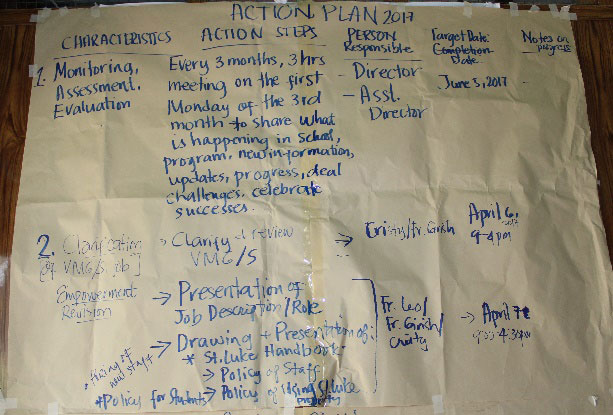 ACTION PLAN 2017
CHARACTERISTICS
ACTION STEPS
PERSON Responsible
Target Date:
Completion Date
Notes on progress
1. Monitoring,
Assessment,
Evaluation
Every 3 months, 3 hrs
meeting on the first
Monday of the 3rd
month to share what
is happening in school,
program, new information,
updates, progress, deal
challenges, celebrate
successes.
- Director
- Asst.
Director
June 5, 2017
2. Clarification
of VMG/S, job
Empowerment
Revision
Clarify & review
VMG/S
Fr. Girish
April 6, 2017
9-4 pm
→ Presentation of
Job Description/Role
→ Drawing + Presentation of:
* St. Luke Handbook
→ Policy of Staff
→ Policy of Using St. Luke
property
Fr. Leo/
Fr. Girish/
→ April 7
4:30pm
* Hiring of
new staff
* Policy for Students